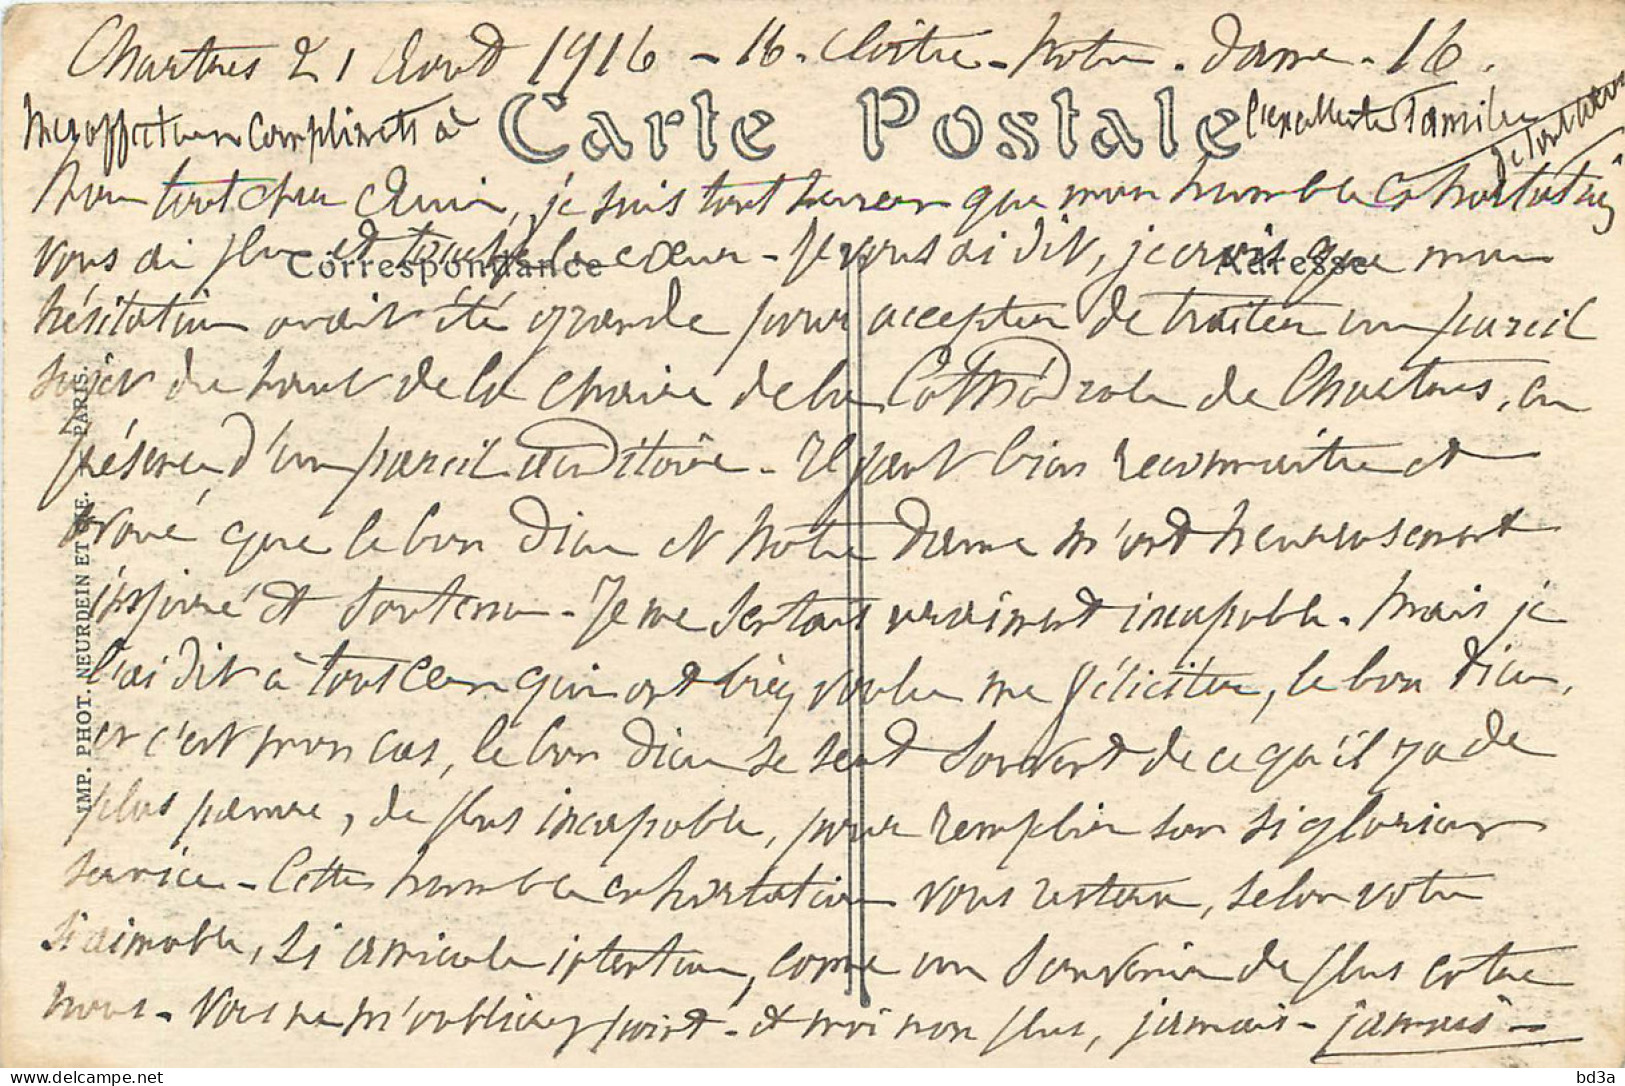 Chartres 21 Aout 1916 - 16. Cloitre - Notre - Dame - 16.
Mes affectueux compliments à
l'excellente famille
de tout cœur
Carte Postale
Mon tout cher Ami, je suis tout heureux que mon humble exhortation
vous ai plu et touché le cœur - Je vous ai dit, je crois que mon
Correspondance
Adresse
hésitation avait été grande pour accepter de traiter un pareil
sujet du haut de la chaire de la Cathédrale de Chartres, en
présence d'un pareil auditoire - Il faut bien reconnaitre et
que le bon Dieu et Notre Dame m'ont heureusement
inspiré et soutenu - Je me sentais vraiment incapable. Mais je
l'ai dit à tous ceux qui ont bien voulu me féliciter, le bon Dieu,
et c'est mon cas, le bon Dieu se sert souvent de ce qu'il y a de
plus pauvre, de plus incapable, pour remplir son si glorieux
service - Cette humble exhortation vous restera, selon votre
si aimable, si amicale intention, comme un souvenir de plus entre
nous - Vous ne m'oubliez point - et moi non plus, jamais - jamais -
IMP. PHOT. NEURDEIN ET CIE. PARIS.
bd3a